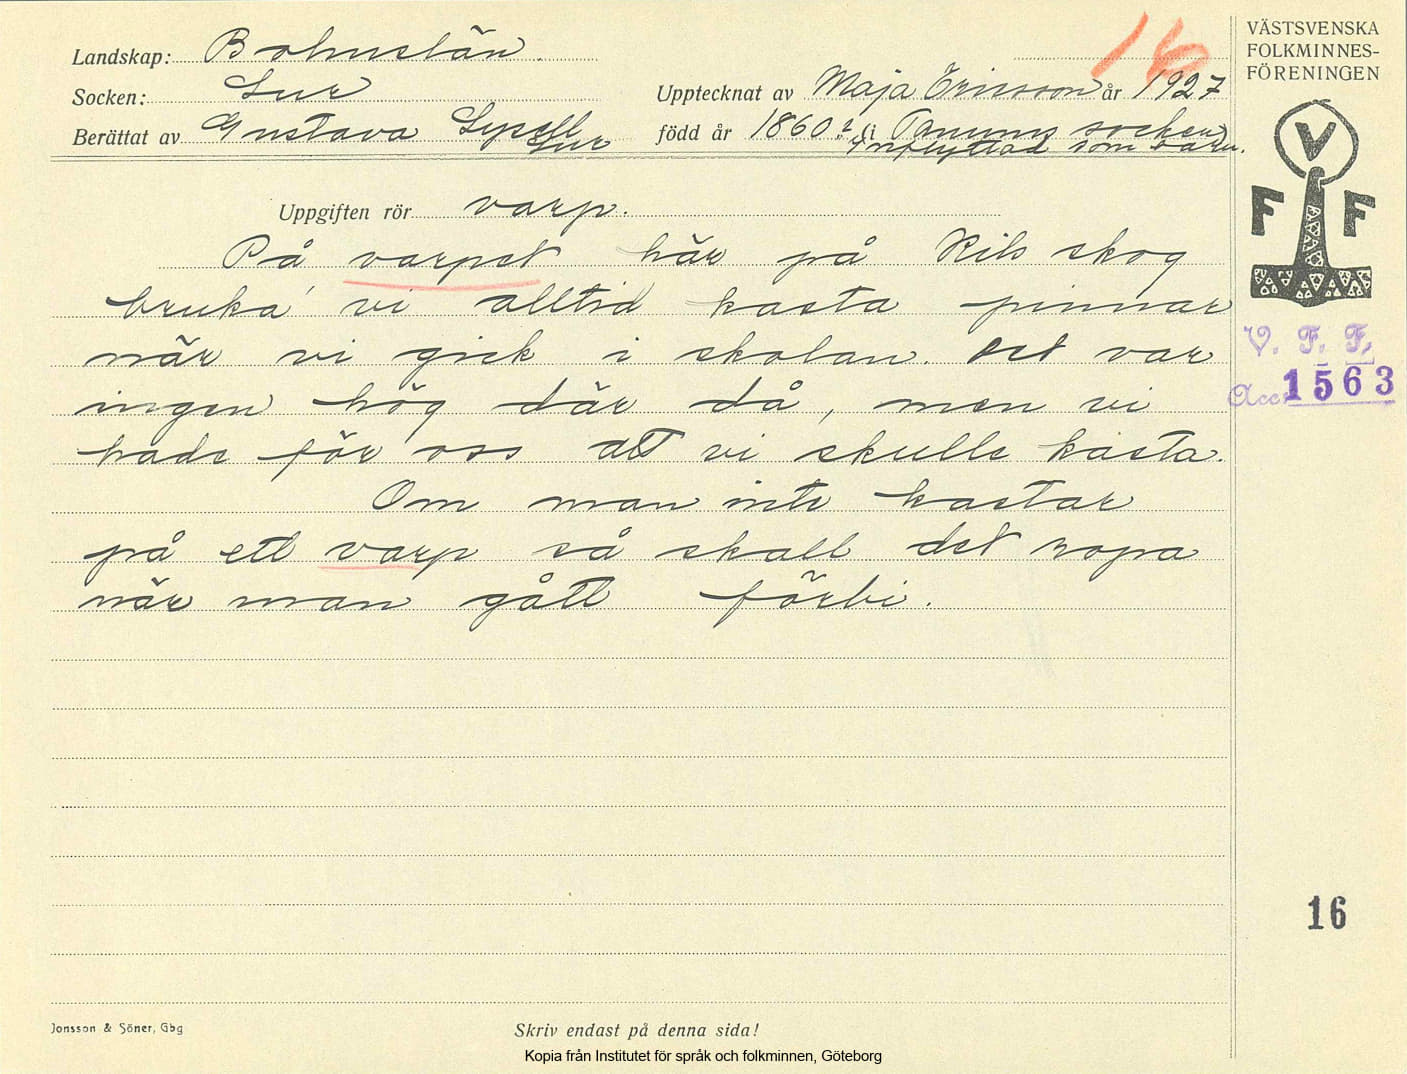 Landskap: Bohuslän.
Socken: Lur
Berättat av Gustava Lysell
Lur
16
Upptecknat av Maja Ericsson år 1927
född år 1860? i Tanums socken
Inflyttad som barn.
VÄSTSVENSKA
FOLKMINNES-
FÖRENINGEN
V
F F
V. F. F.
Acc. 1563
Uppgiften rör varp.
På varpet här på Rils skog
bruka' vi alltid kasta pinnar
när vi gick i skolan. Det var
ingen hög där då, men vi
hade för oss att vi skulle kasta.
Om man inte kastar
på ett varp så skall det ropa
när man gått förbi.
16
Jonsson & Söner, Gbg
Skriv endast på denna sida!
Kopia från Institutet för språk och folkminnen, Göteborg